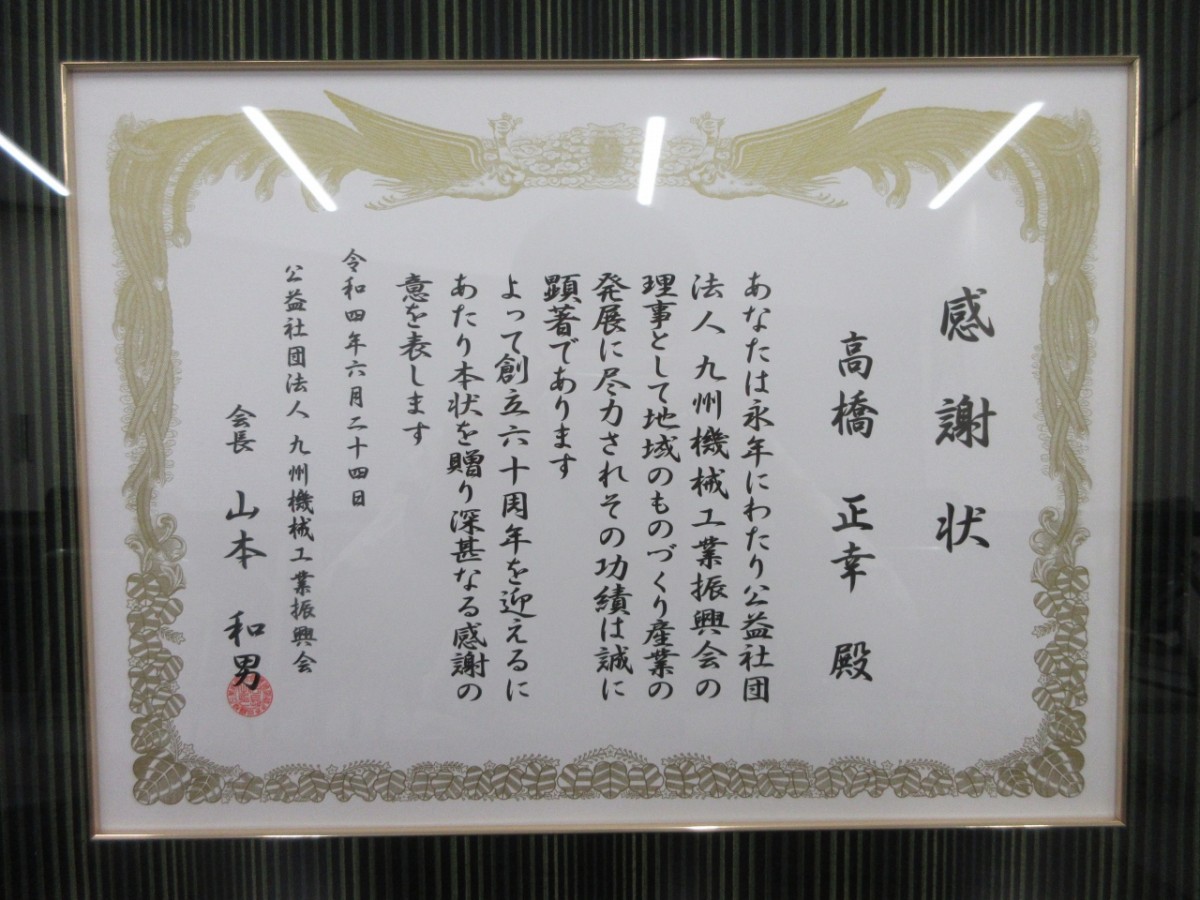 感謝状
高橋 正幸 殿
あなたは永年にわたり公益社団
法人 九州機械工業振興会の
理事として地域のものづくり産業の
発展に尽力されその功績は誠に
顕著であります
よって創立六十周年を迎えるに
あたり本状を贈り深甚なる感謝の
意を表します
令和四年六月二十四日
公益社団法人 九州機械工業振興会
会長 山本 和男